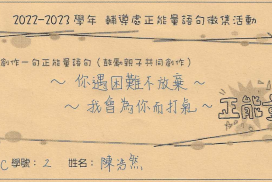 2022-2023 學年 輔導處正能量語句徵集活動
創作一句正能量語句（鼓勵親子共同創作）
～ 你遇困難不放棄 ～
～ 我會為你而打氣 ～
正能
C 學號： 2 姓名： 陳浩然